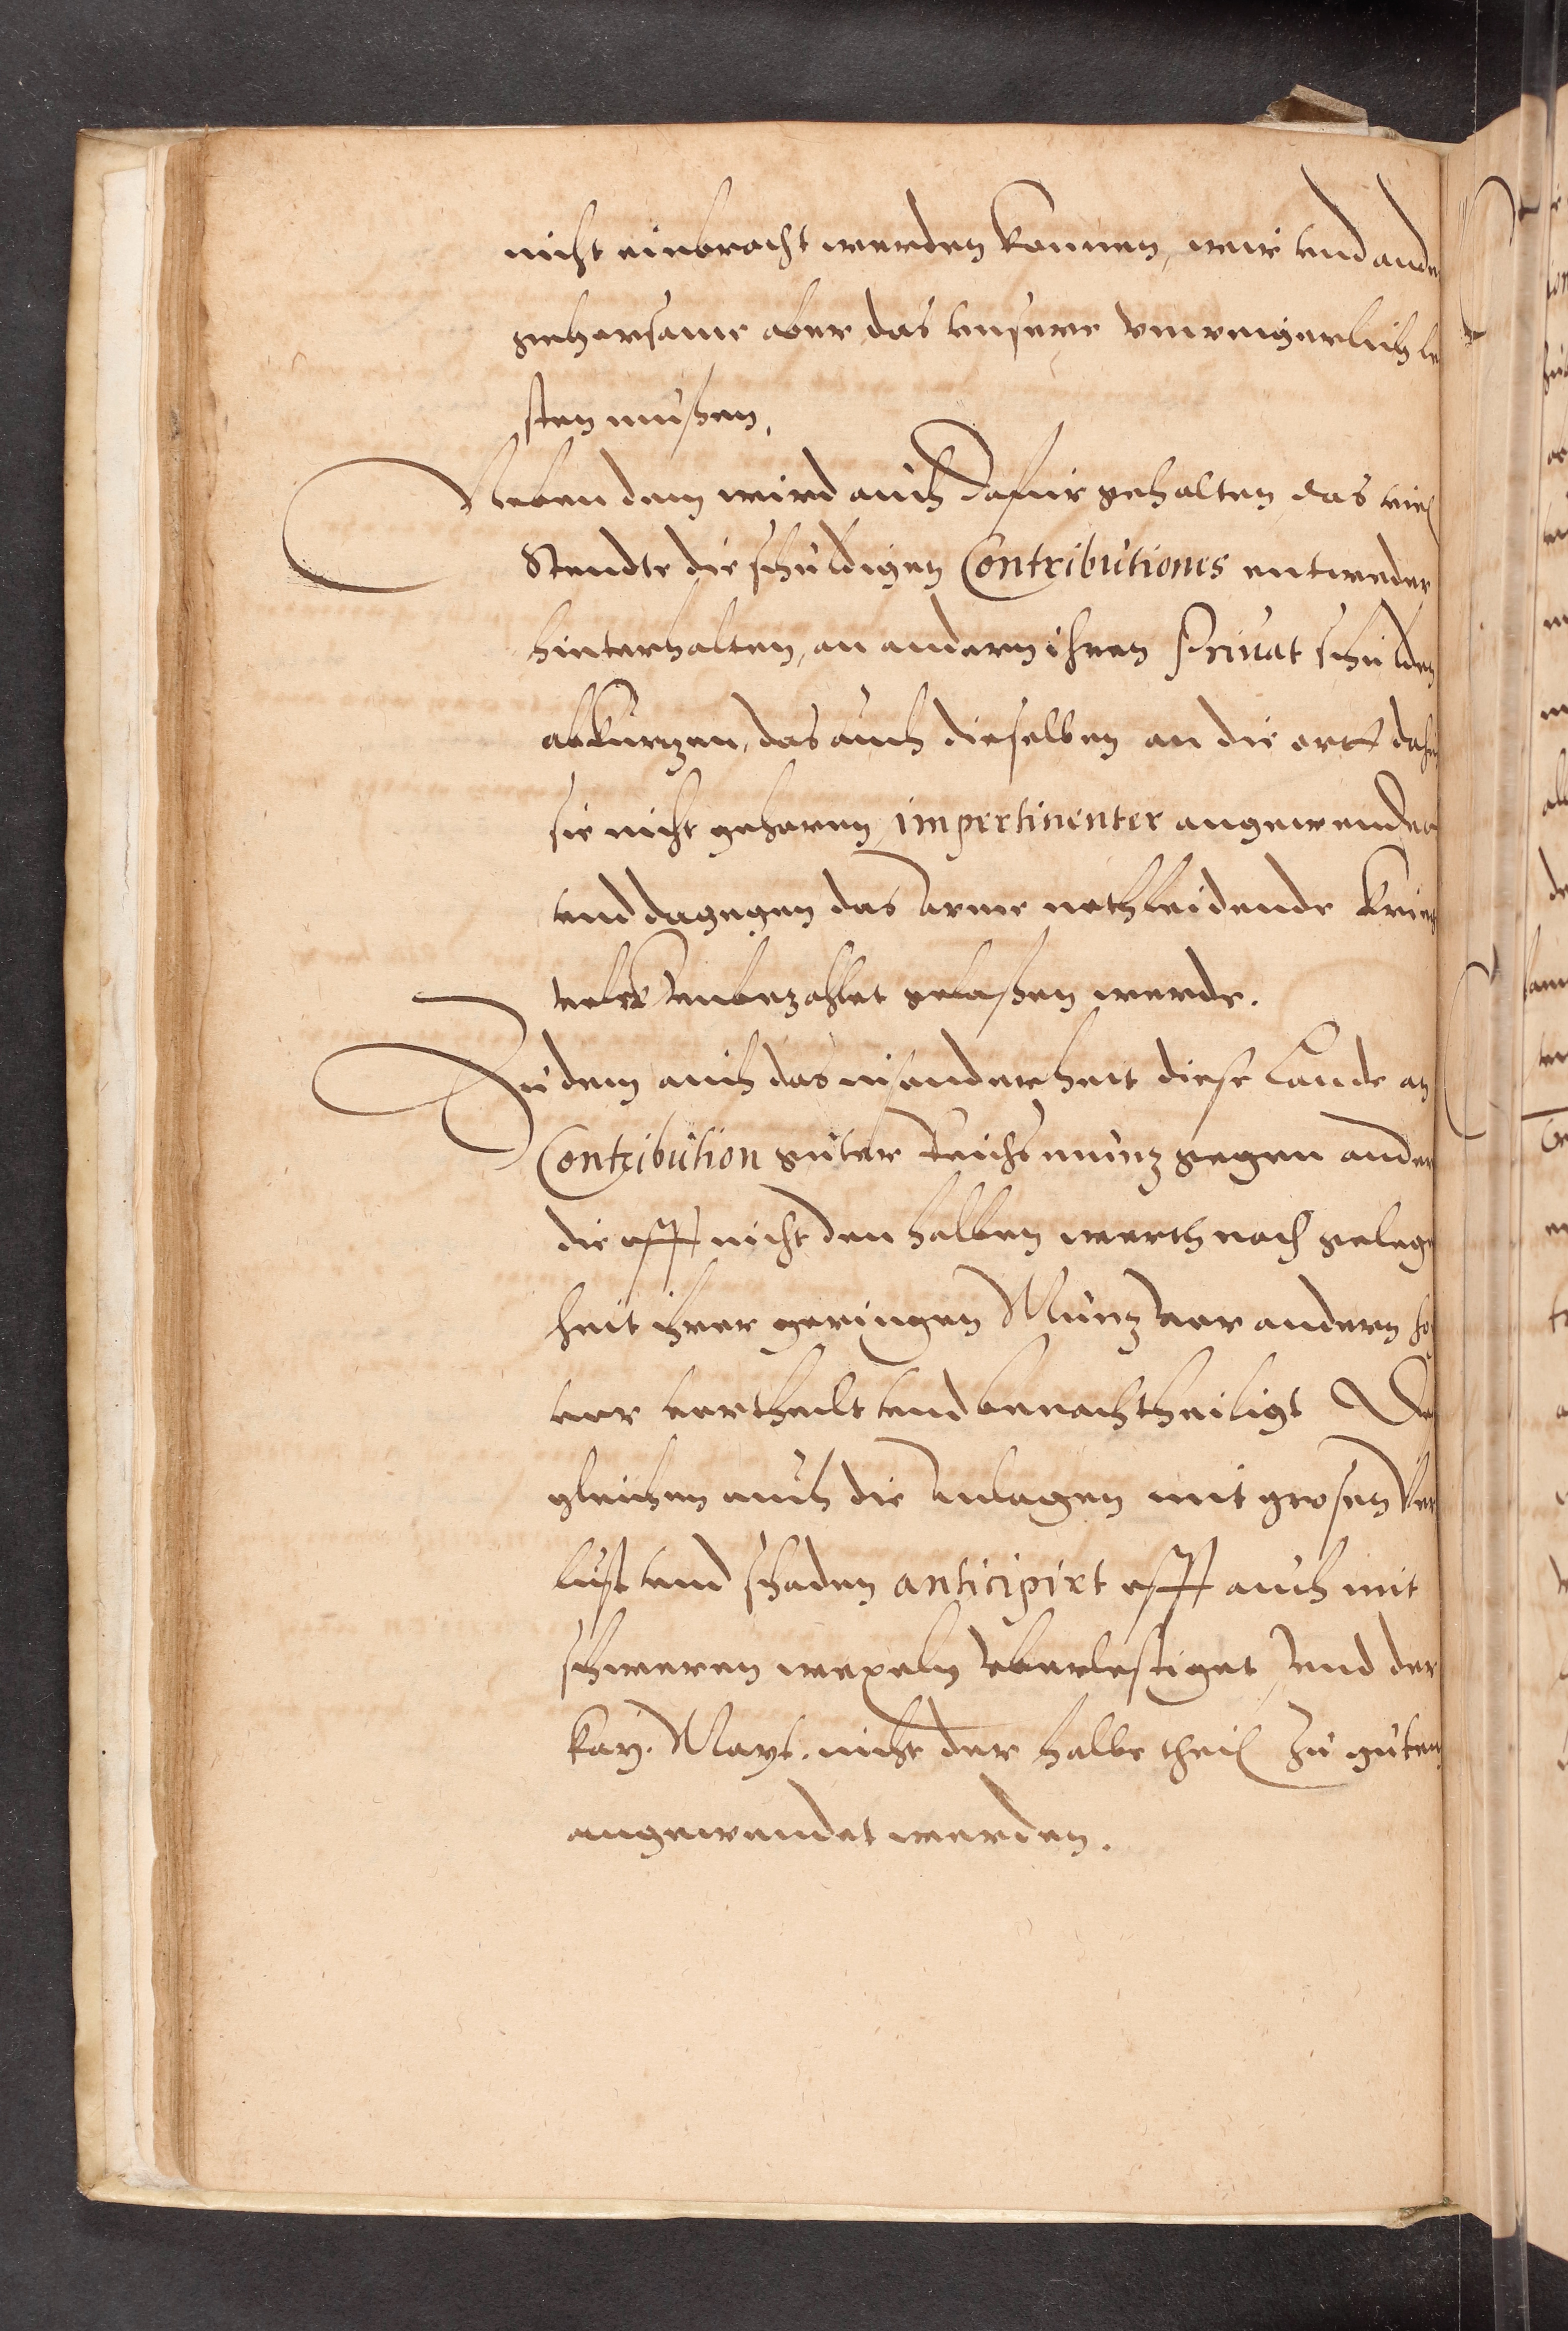 nicht einbracht werden konnen, wir vnd ande
gehorsame aber das vnsere vnweigerlich le
sten mußen,
Neben dem wird auch dafur gehalten das viel
Stendte die schuldigen Contributiones entweder
hinterhalten, an andern ihren Priuat schulden
abkurzen, das auch dieselben an die ortt dahin
sie nicht gehoren impertinenter angewendet
vnd dagegen das arme nothleidende Kriegs
volck vnbezahlet gelaßen werde.
Zu dem auch das insonderheit diese Lande an
Contribution guter Reichsmunz gegen ander
die offt nicht den halben werth nach gelegen
heit ihrer geringen Munz vor andern ho
vervortheilt vnd benachtheiligt Des
gleichen auch die Anlagen mit grosen ver
lust vnd schaden anticipirt offt auch mit
schweren wexeln vberlestiget, vnd der
Kay. Mayt. nicht der halbe theil zu guten
angewendet werden.